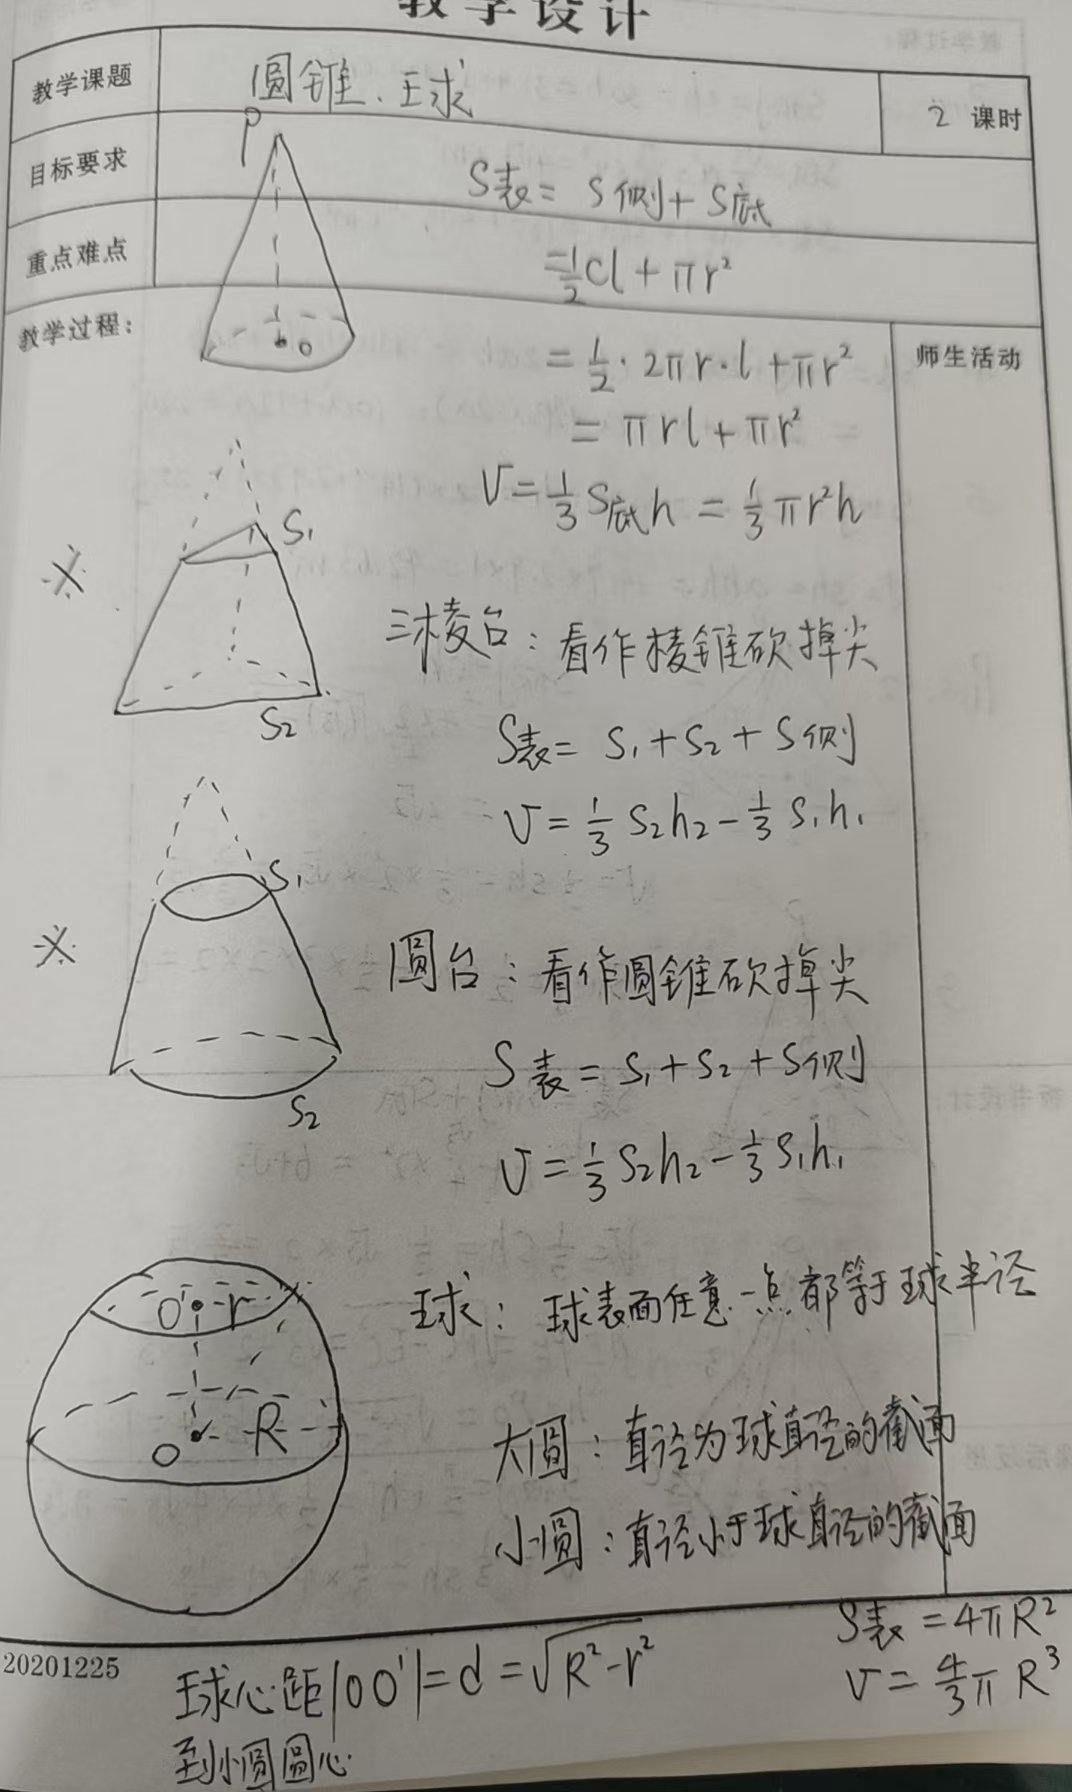 教学设计
教学课题 圆锥、球 2 课时
目标要求
重点难点
教学过程:
师生活动
P
O
S表 = S侧 + S底
= 1/2 Cl + πr²
= 1/2 · 2πr · l + πr²
= πrl + πr²
V = 1/3 S底h = 1/3 πr²h
※
S₁
S₂
三棱台：看作棱锥砍掉尖
S表 = S₁ + S₂ + S侧
V = 1/3 S₂h₂ - 1/3 S₁h₁
※
S₁
S₂
圆台：看作圆锥砍掉尖
S表 = S₁ + S₂ + S侧
V = 1/3 S₂h₂ - 1/3 S₁h₁
O' r
O R
球：球表面任意一点都等于球半径
大圆：直径为球直径的截面
小圆：直径小于球直径的截面
S表 = 4πR²
V = 4/3 π R³
20201225
球心距|OO'| = d = √(R² - r²)
到小圆圆心